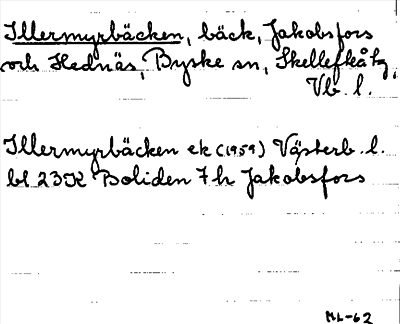 Illermyrbäcken, bäck, Jakobsfors
och Hednäs, Byske sn, Skellefteå kg,
Vb. l.
Illermyrbäcken ek (1959) Västerb. l.
bl 23K Boliden 7h Jakobsfors
ML-62